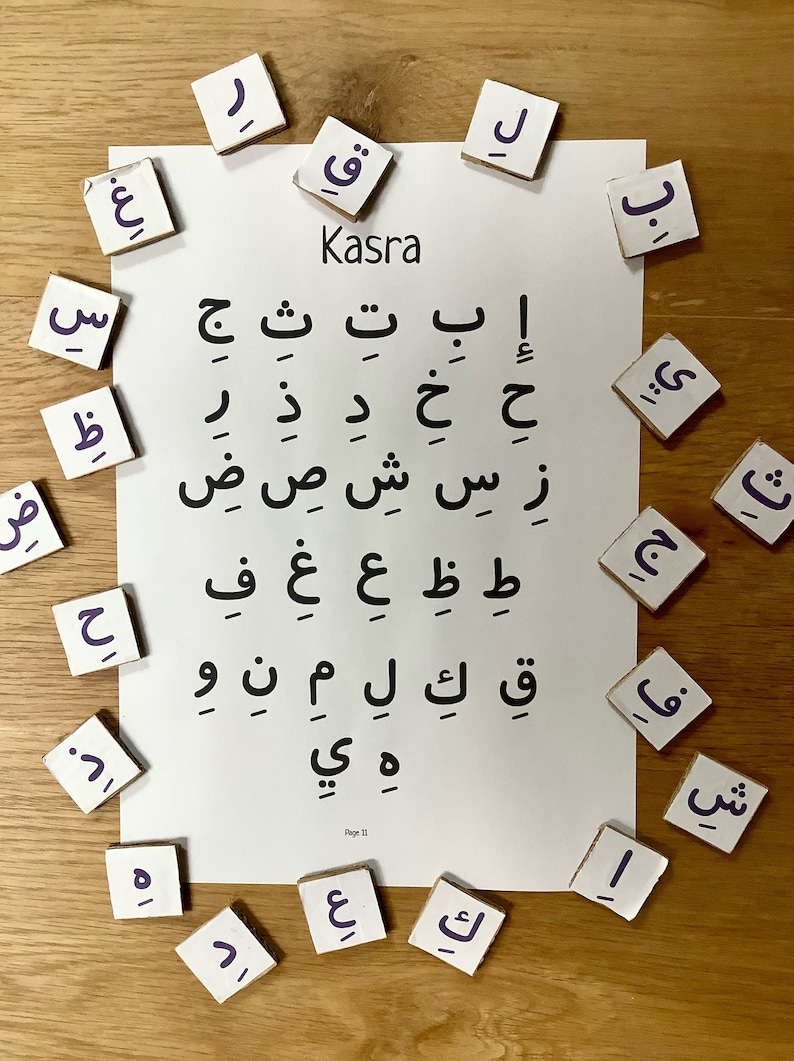 Kasra
إِ بِ تِ ثِ جِ
حِ خِ دِ ذِ رِ
زِ سِ شِ صِ ضِ
طِ ظِ عِ غِ فِ
قِ كِ لِ مِ نِ وِ
هِ يِ
Page 11
رِ
قِ
لِ
بِ
غِ
سِ
يِ
ظِ
ثِ
ضِ
جِ
حِ
فِ
ذِ
شِ
هِ
اِ
عِ
كِ
دِ